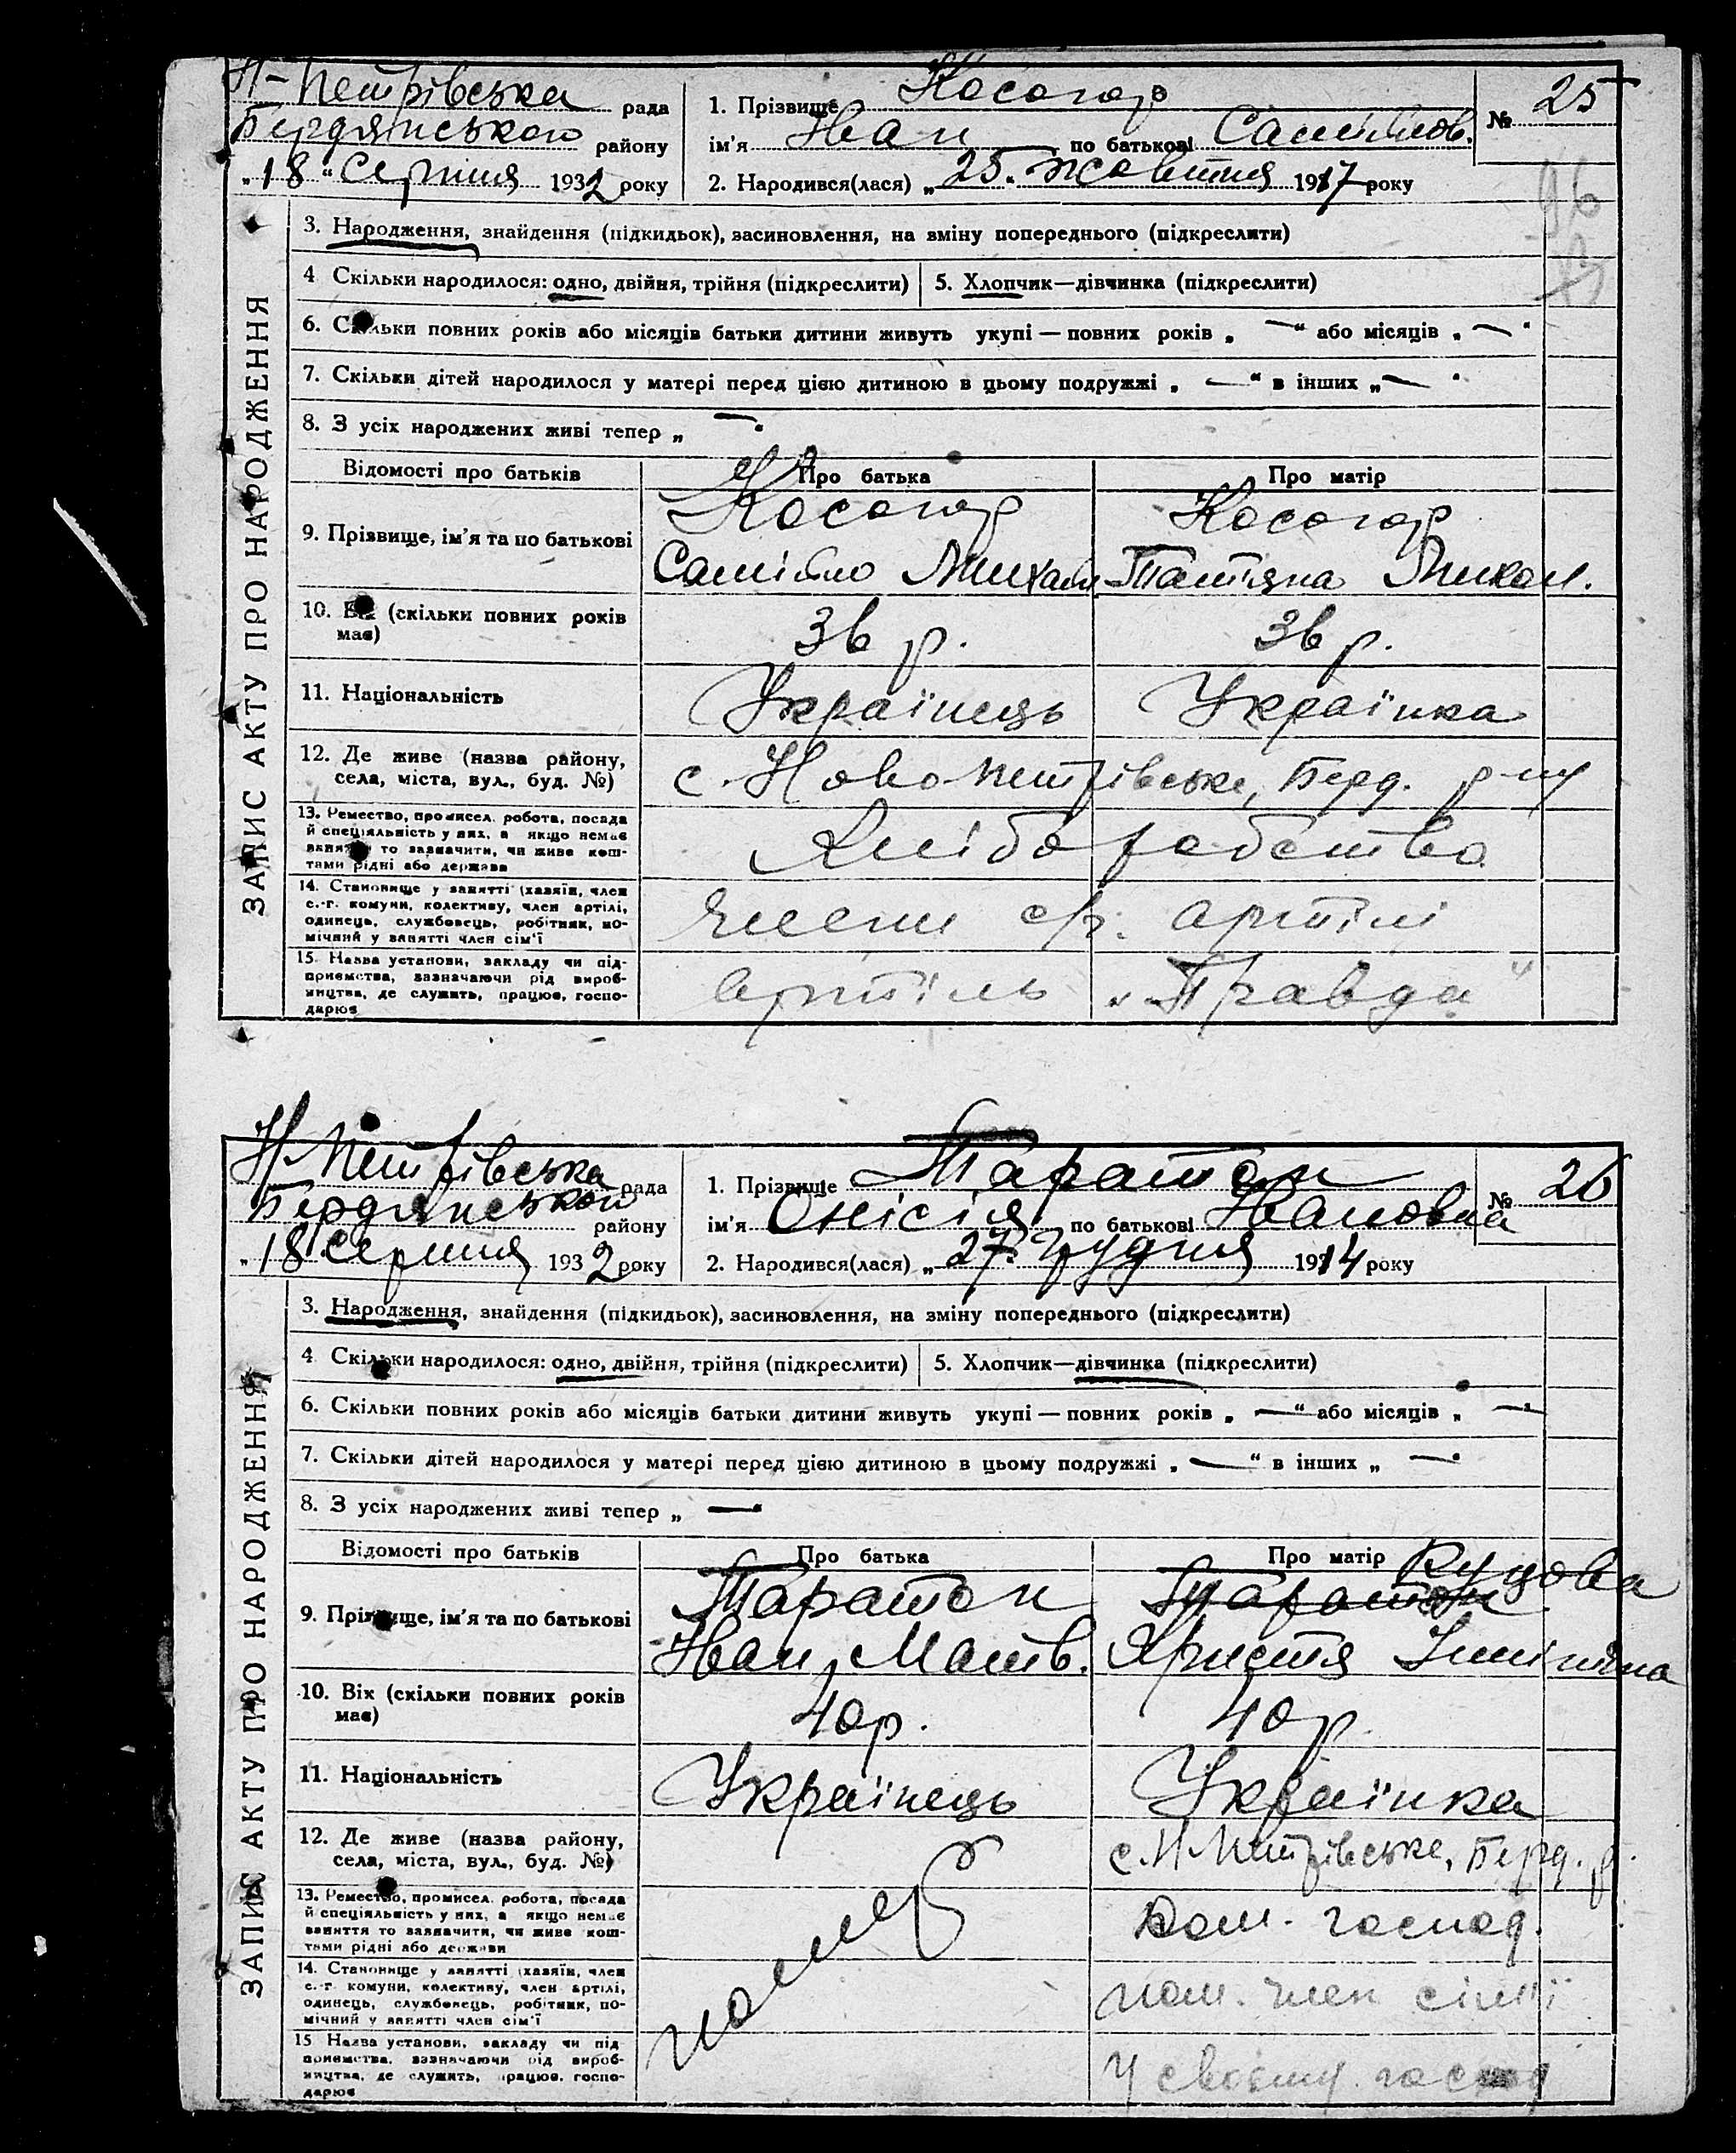 Н-Петрівська рада
Бердянського району
„18“ Серпня 1932 року
1. Прізвище Косогор
ім'я Іван по батькові Самійлов.
2. Народився(лася) „25“ жовтня 1917 року
№ 25
96
ЗАПИС АКТУ ПРО НАРОДЖЕННЯ
3. Народження, знайдення (підкидьок), засиновлення, на вміну попереднього (підкреслити)
4 Скільки народилося: одно, двійня, трійня (підкреслити)
5. Хлопчик—дівчинка (підкреслити)
6. Скільки повних років або місяців батьки дитини живуть укупі — повних років „ — “ або місяців „ — “
7. Скільки дітей народилося у матері перед цією дитиною в цьому подружжі „ — “ в інших „ — “
8. З усіх народжених живі тепер „ — “
Відомості про батьків
Про батька
Про матір
9. Прізвище, ім'я та по батькові
Косогор
Самійло Михайл.
Косогор
Татіяна Микол.
10. Вік (скільки повних років
має)
36 р.
36 р.
11. Національність
Українець
Українка
12. Де живе (назва району,
села, міста, вул., буд. №)
с. Ново-Петрівське, Берд. р-ну
13. Ремество, промисел. робота, посада
й спеціяльність у них, а якщо немає
заняття то зазначити, чи живе кош-
тами рідні або держава
Хліборобство
14. Становище у занятті (хазяїн, член
с.-г. комуни, колективу, член артілі,
одинець, службовець, робітник, по-
мічний у занятті член сім'ї
Члени с/г. артілі
15. Назва установи, закладу чи під-
приємства, зазначаючи рід вироб-
ництва, де служить, працює, госпо-
дарює
Артіль „Правда“
Н-Петрівська рада
Бердянського району
„18“ Серпня 1932 року
1. Прізвище Таратон
ім'я Онісія по батькові Івановна
2. Народився(лася) „27“ Грудня 1914 року
№ 26
ЗАПИС АКТУ ПРО НАРОДЖЕННЯ
3. Народження, знайдення (підкидьок), засиновлення, на зміну попереднього (підкреслити)
4 Скільки народилося: одно, двійня, трійня (підкреслити)
5. Хлопчик—дівчинка (підкреслити)
6. Скільки повних років або місяців батьки дитини живуть укупі — повних років „ — “ або місяців „ — “
7. Скільки дітей народилося у матері перед цією дитиною в цьому подружжі „ — “ в інших „ — “
8. З усіх народжених живі тепер „ — “
Відомості про батьків
Про батька
Про матір
9. Прізвище, ім'я та по батькові
Таратон
Іван Матв.
Таратон Куцова
Христя
10. Вік (скільки повних років
має)
40р.
40р.
11. Національність
Українець
Українка
12. Де живе (назва району,
села, міста, вул., буд. №)
с. Н-Петрівське, Берд. р.
13. Ремество, промисел. робота, посада
й спеціяльність у них, а якщо немає
заняття то зазначити, чи живе кош-
тами рідні або держави
Дом. господ.
14. Становище у занятті (хазяїн, член
с.-г. комуни, колективу, член артілі,
одинець, службовець, робітник, по-
мічний у занятті член сім'ї
пом. член сім'ї
15 Назва установи, закладу чи під-
приємства, зазначаючи рід вироб-
ництва, де служить, працює, госпо-
дарює
У своєму господ
помер